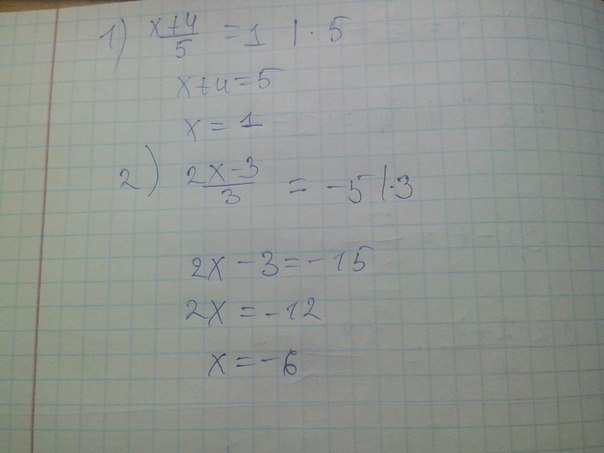 1) (x+4)/5 = 1 | · 5
x+4=5
x=1
2) (2x-3)/3 = -5 | · 3
2x-3=-15
2x=-12
x=-6